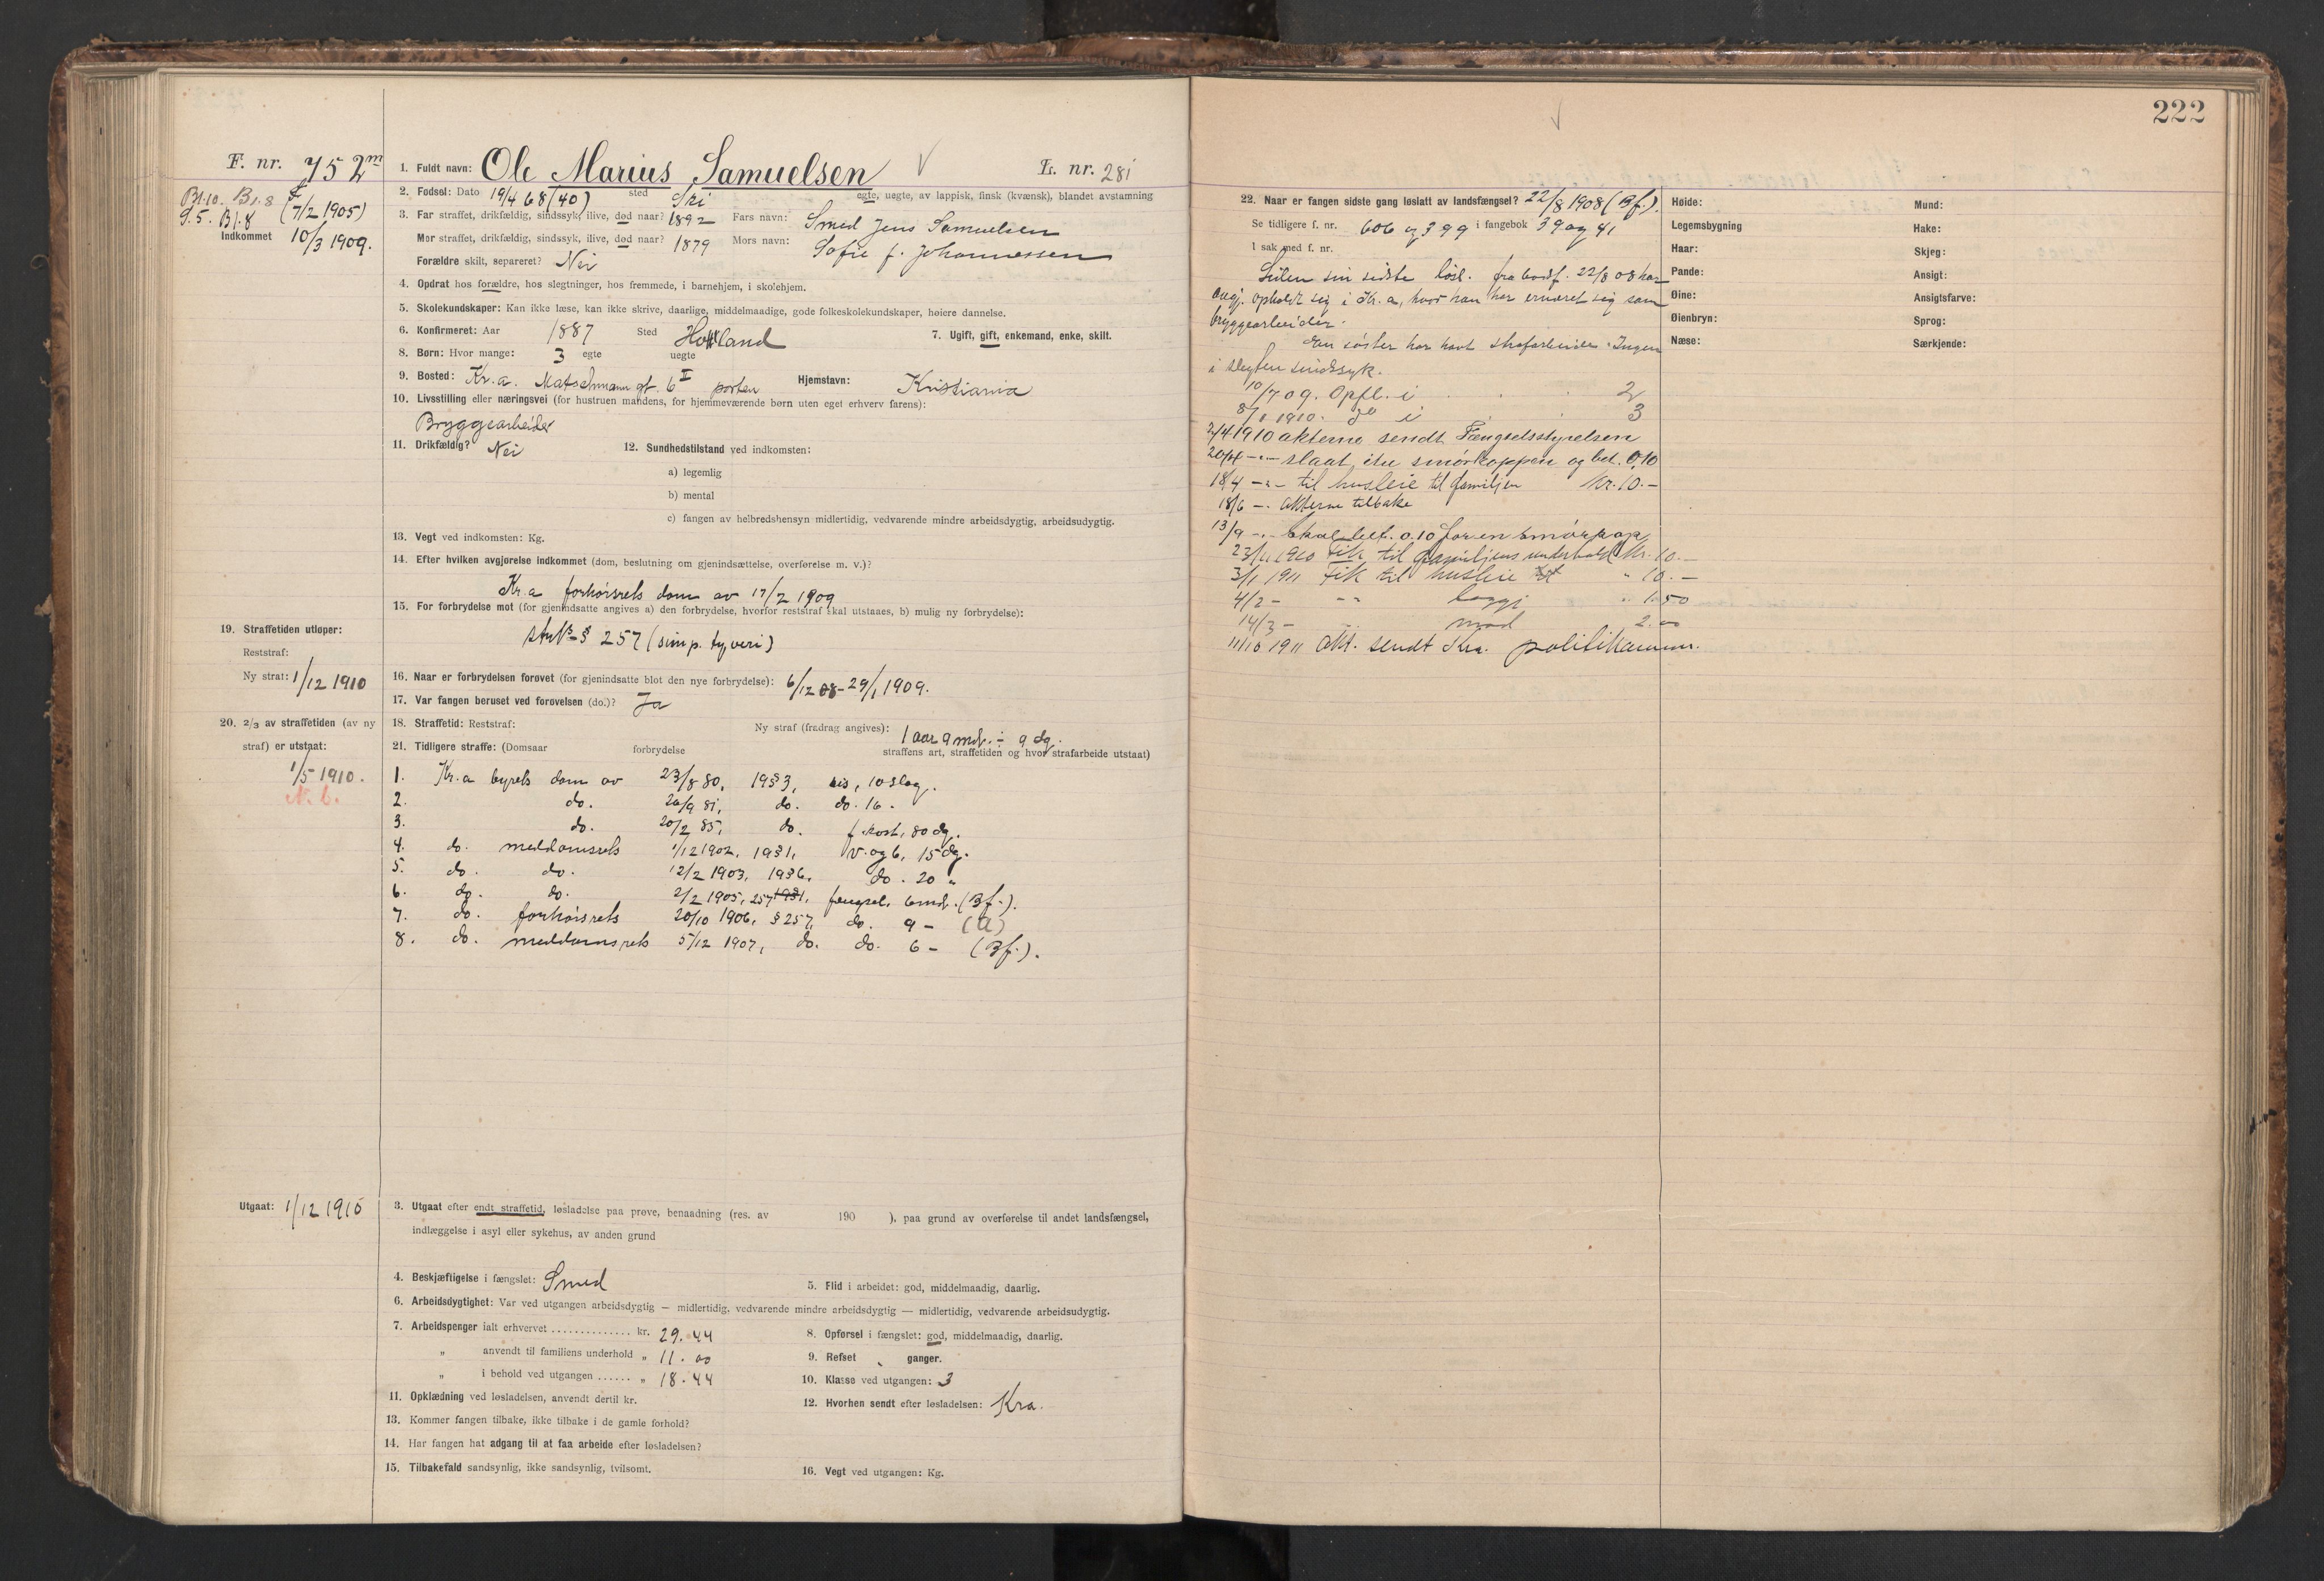 222
F. nr. 752 m
1. Fuldt navn: Ole Marius Samuelsen
L. nr. 281
Bl. 10. Bl. 8
S. 5. Bl. 8 (7/2 1905)
Indkommet 10/3 1909.
2. Fødsel: Dato 19/4 68 (40) sted Ski egte, uegte, av lappisk, finsk (kvænsk), blandet avstamning
3. Far straffet, drikfældig, sindssyk, ilive, død naar? 1892 Fars navn: Smed Jens Samuelsen
Mor straffet, drikfældig, sindssyk, ilive, død naar? 1879 Mors navn: Sofie f. Johannessen
Forældre skilt, separeret? Nei
4. Opdrat hos forældre, hos slegtninger, hos fremmede, i barnehjem, i skolehjem.
5. Skolekundskaper: Kan ikke læse, kan ikke skrive, daarlige, middelmaadige, gode folkeskolekundskaper, høiere dannelse.
6. Konfirmeret: Aar 1887 Sted 7. Ugift, gift, enkemand, enke, skilt.
8. Børn: Hvor mange: 3 egte uegte
9. Bosted: Kr.a. gt. 6 I porten Hjemstavn: Kristiania
10. Livsstilling eller næringsvei (for hustruen mandens, for hjemmeværende børn uten eget erhverv farens):
Bryggearbeider
11. Drikfældig? Nei 12. Sundhedstilstand ved indkomsten:
a) legemlig
b) mental
c) fangen av helbredshensyn midlertidig, vedvarende mindre arbeidsdygtig, arbeidsudygtig.
13. Vegt ved indkomsten: Kg.
14. Efter hvilken avgjørelse indkommet (dom, beslutning om gjenindsættelse, overførelse m. v.)?
Kr.a forhørsrets dom av 17/2 1909
15. For forbrydelse mot (for gjenindsatte angives a) den forbrydelse, hvorfor reststraf skal utstaaes, b) mulig ny forbrydelse):
§ 257 (simp. tyveri)
19. Straffetiden utløper:
Reststraf:
Ny straf: 1/12 1910
16. Naar er forbrydelsen forøvet (for gjenindsatte blot den nye forbrydelse): 6/12 08 - 29/1 1909.
17. Var fangen beruset ved forøvelsen (do.)? Ja
20. 2/3 av straffetiden (av ny straf) er utstaat:
1/5 1910.
N. 6.
18. Straffetid: Reststraf: Ny straf (fradrag angives): 1 aar 9 md. ÷ 9 dg.
21. Tidligere straffe: (Domsaar forbrydelse straffens art, straffetiden og hvor strafarbeide utstaat)
1. Kr.a byrets dom av 23/8 80, 19§3, ris, 10 slag.
2. do. 20/9 81, do. do. 16 -
3. do. 20/2 85, do. f. kost, 80 dg.
4. do. meddomsrets 1/12 1902, 19§1, v. og b, 15 dg.
5. do. do. 12/2 1903, 19§6, do. 20 "
6. do. do. 2/2 1905, 257 19§1, fængsel, 6 md. (Bf.).
7. do. forhørsrets 20/10 1906, § 257, do. 9 - (A)
8. do. meddomsrets 5/12 1907, do. do. 6 - (Bf.).
Utgaat: 1/12 1910
3. Utgaat efter endt straffetid, løsladelse paa prøve, benaadning (res. av 190 ), paa grund av overførelse til andet landsfængsel,
indlæggelse i asyl eller sykehus, av anden grund
4. Beskjæftigelse i fængslet: Smed 5. Flid i arbeidet: god, middelmaadig, daarlig.
6. Arbeidsdygtighet: Var ved utgangen arbeidsdygtig — midlertidig, vedvarende mindre arbeidsdygtig — midlertidig, vedvarende arbeidsudygtig.
7. Arbeidspenger ialt erhvervet .............. kr. 29.44 8. Opførsel i fængslet: god, middelmaadig, daarlig.
" anvendt til familiens underhold " 11.00 9. Refset " ganger.
" i behold ved utgangen ...... " 18.44 10. Klasse ved utgangen: 3
11. Opklædning ved løsladelsen, anvendt dertil kr. 12. Hvorhen sendt efter løsladelsen: Kra.
13. Kommer fangen tilbake, ikke tilbake i de gamle forhold?
14. Har fangen hat adgang til at faa arbeide efter løsladelsen?
15. Tilbakefald sandsynlig, ikke sandsynlig, tvilsomt. 16. Vegt ved utgangen: Kg.
22. Naar er fangen sidste gang løslatt av landsfængsel? 22/8 1908 (Bf.).
Se tidligere f. nr. 606 og 399 i fangebok 39 og 41
I sak med f. nr.
Siden sin sidste løsl. fra bodsf. 22/8 08 har
angj. opholdt sig i Kr.a, hvor han har ernæret sig som
bryggearbeider.
En søster har havt strafarbeide. Ingen
i slegten sindssyk.
10/7 09. Opfl. i 2
8/1 1910. do i 3
2/4 1910 akterne sendt Fængselsstyrelsen
20/4 -"- slaat itu smørkoppen og bet. 0,10
18/4 -"- til husleie til familjen Kr. 10.-
18/6 -"- Akterne tilbake
13/9 -"- Skal bet. 0.10 for en smørkop
23/11 1910 Fik til familjens underhold Kr. 10.-
3/1 1911 Fik til husleie " 10.-
4/2 - -"- " 1.50
14/3 - " mad 2.00
11/10 1911 Akt. sendt Kra. politikammer.
Høide:
Legemsbygning
Haar:
Pande:
Øine:
Øienbryn:
Næse:
Mund:
Hake:
Skjeg:
Ansigt:
Ansigtsfarve:
Sprog:
Særkjende: